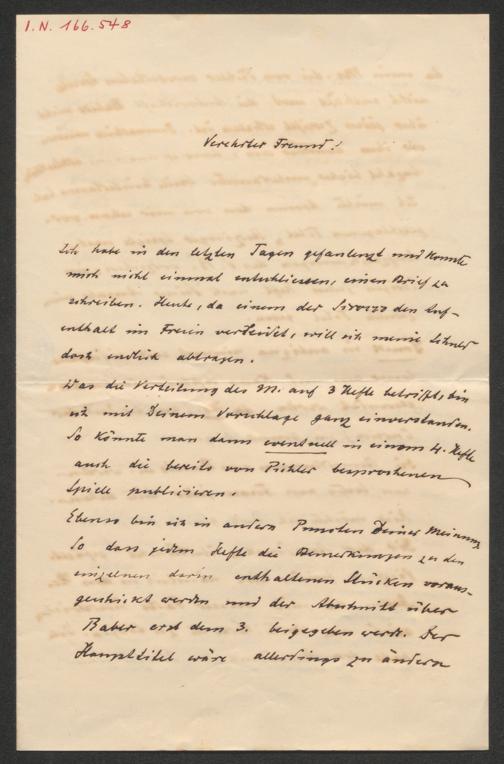 I.N. 166.548
Verehrter Freund!
Ich habe in den letzten Tagen gefaulenzt und konnte
mich nicht einmal entschliessen, einen Brief zu
schreiben. Heute, da einem der Sirocco den Auf-
enthalt im Freien verleidet, will ich meine Schuld
doch endlich abtragen.
Was die Verteilung des M. auf 3 Hefte betrifft, bin
ich mit Deinem Vorschlage ganz einverstanden.
So könnte man dann eventuell in einem 4. Hefte
auch die bereits von Pichler besprochenen
Spiele publicieren.
Ebenso bin ich in andern Puncten Deiner Meinung
So dass jedem Hefte die Bemerkungen zu den
einzelnen darin enthaltenen Stücken voraus-
geschickt werden und der Abschnitt über
Raber erst dem 3. beigegeben werde. Der
Haupttitel wäre allerdings zu ändern